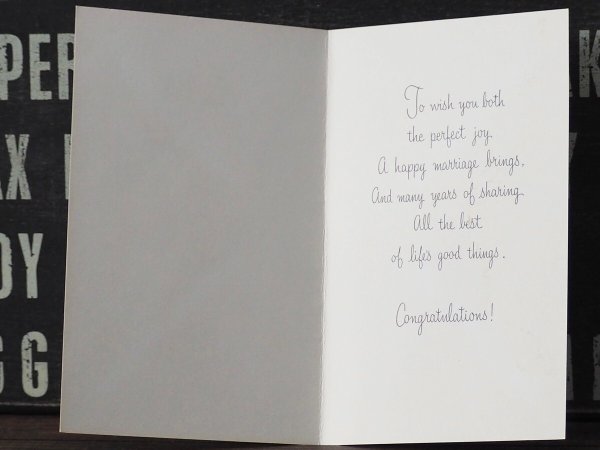 PER
AX
DY
GG
K
To wish you both
the perfect joy,
A happy marriage brings,
And many years of sharing
All the best
of life's good things.
Congratulations!